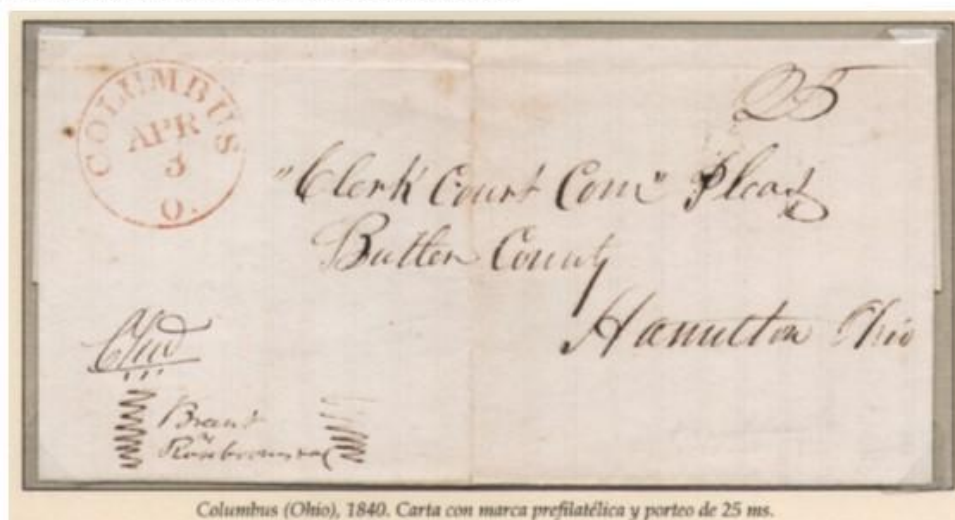 COLUMBUS
APR
3
O.
25
"Clerk Court Com" Pleas
Butler County
Hamilton Ohio
Brant
Columbus (Ohio), 1840. Carta con marca prefilatélica y porteo de 25 ms.